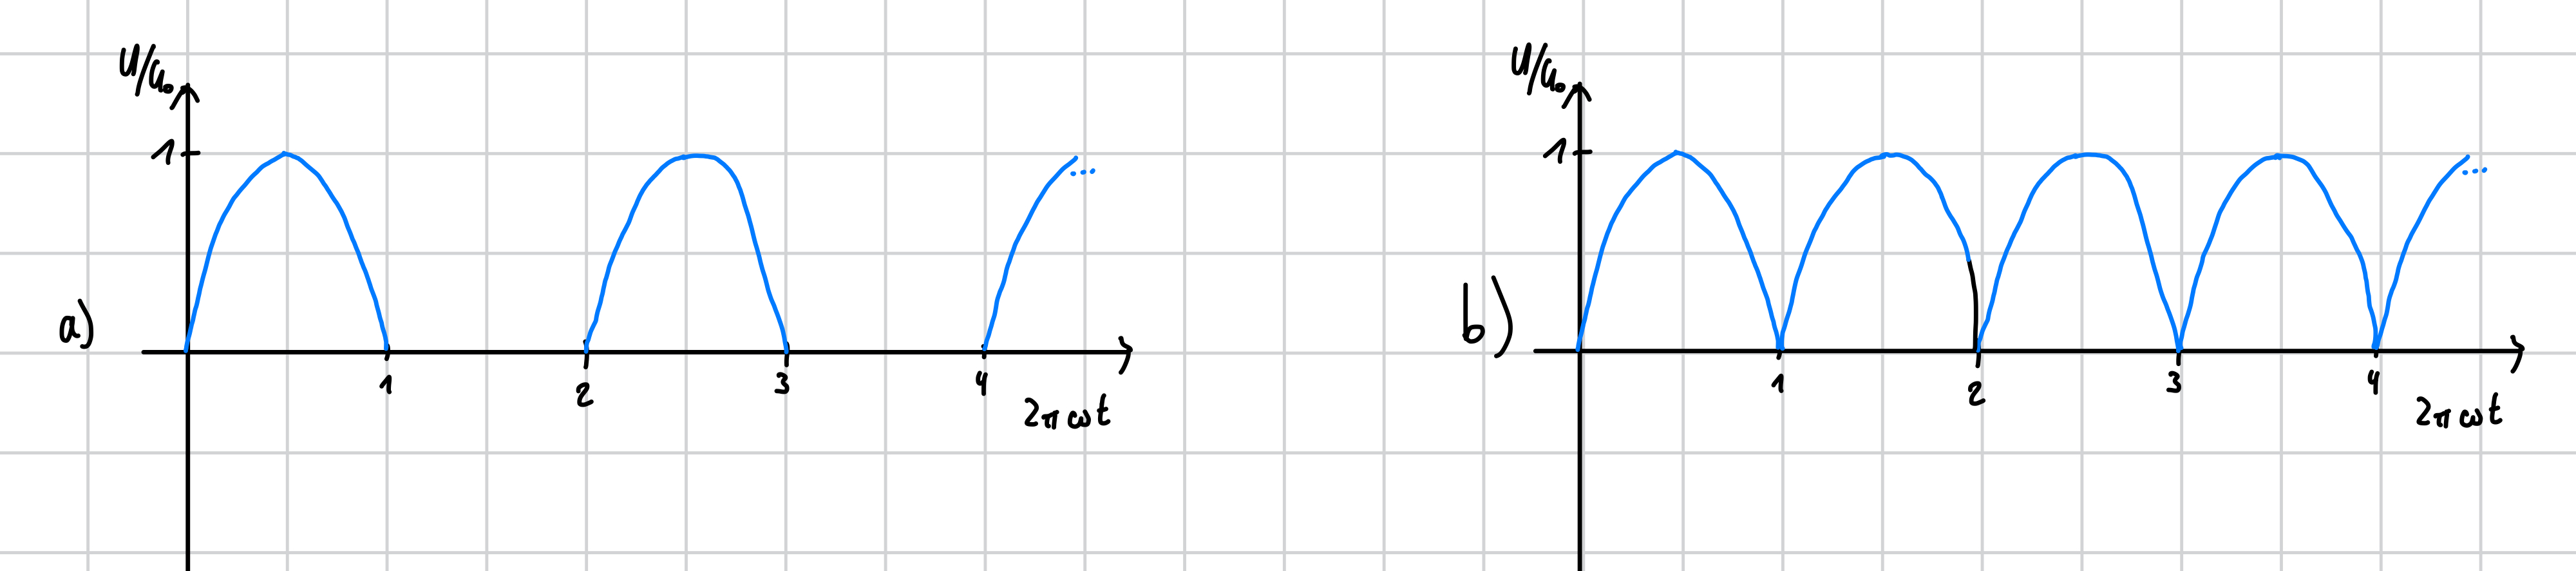 U/U₀
1
a)
1 2 3 4
2πωt
U/U₀
1
b)
1 2 3 4
2πωt